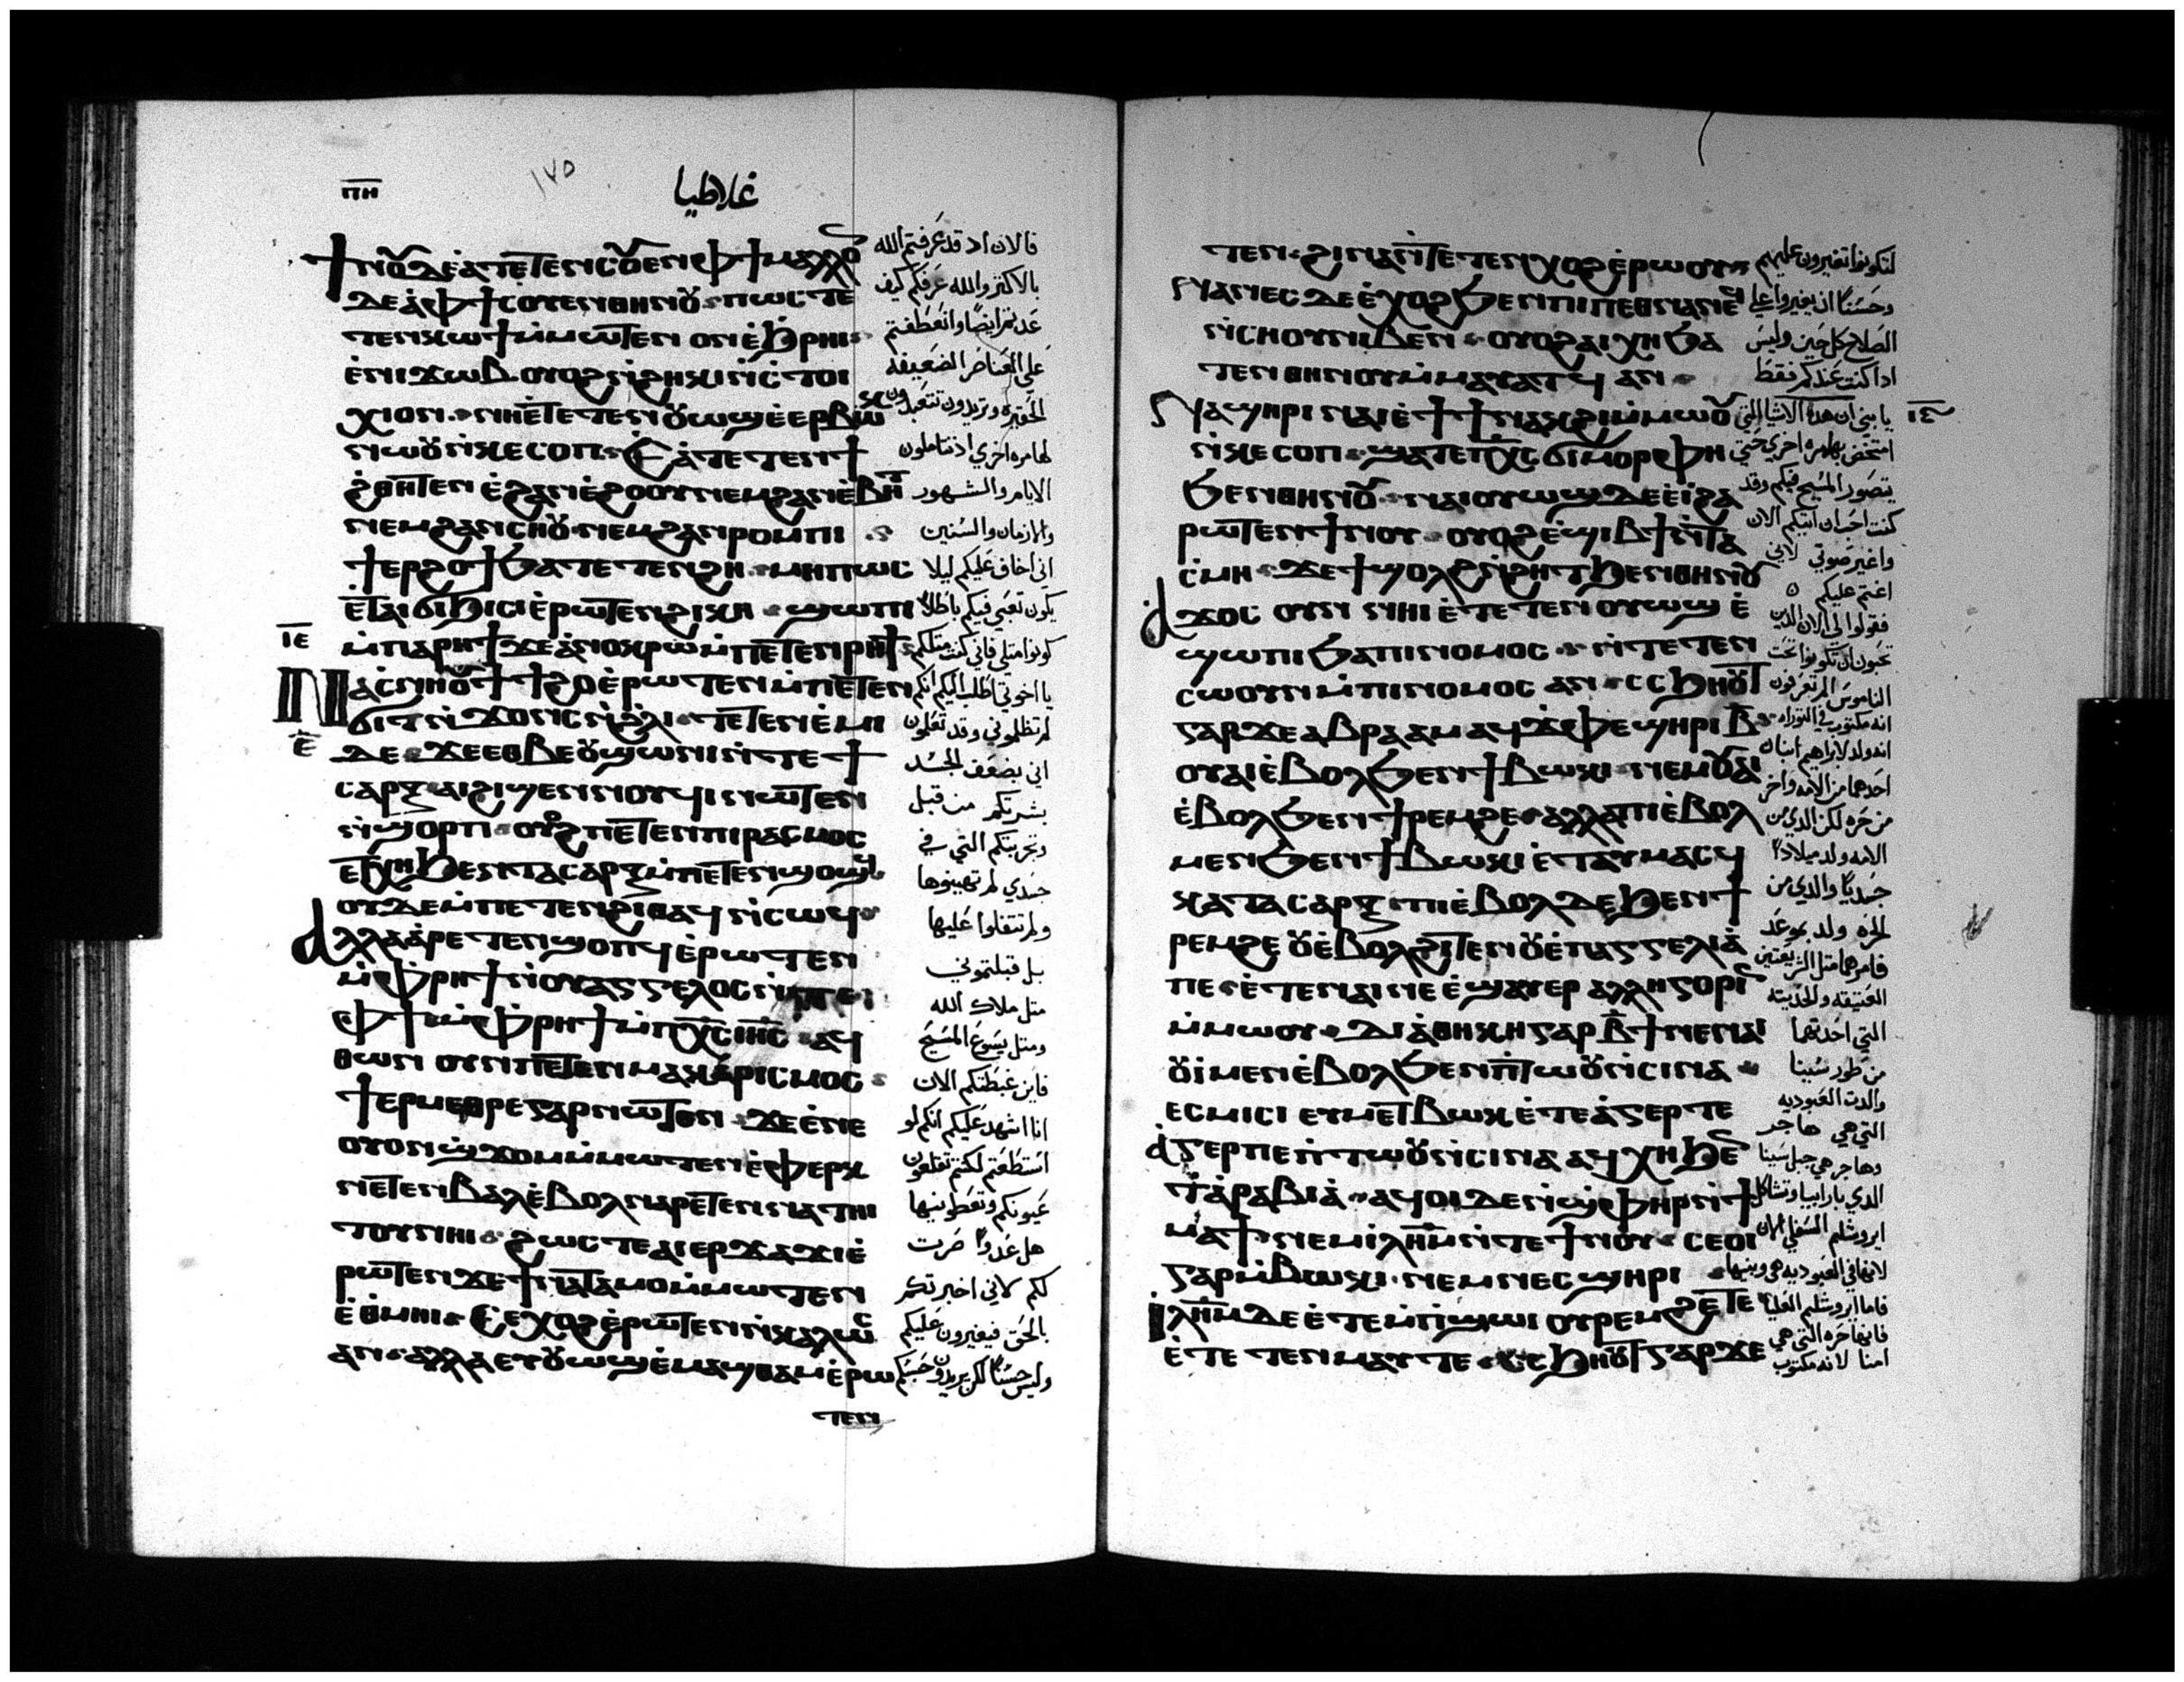 ⲡⲏ
١٧٥
غلاطيا
ϯⲛⲟⲩ ⲇⲉ ⲁⲧⲉⲧⲉⲛⲥⲟⲩⲉⲛ ⲫϯ ⲙⲁⲗⲗⲟ
ⲇⲉ ⲁ̀ⲫϯ ⲥⲟⲩⲉⲛ ⲑⲏⲛⲟⲩ ⲡⲱⲥ ⲧⲉ
ⲧⲉⲛⲕⲱϯ ⲙ̀ⲙⲱⲧⲉⲛ ⲟⲛ ⲉ̀ϧⲣⲏⲓ
ⲉ̀ⲛⲓϫⲱⲃ ⲟⲩⲟϩ ⲛ̀ϩⲏⲕⲓ ⲛ̀ⲥⲧⲟⲓ
ⲭⲓⲟⲛ ⲛⲏ ⲉ̀ⲧⲉⲧⲉⲛⲟⲩⲱϣ ⲉ̀ⲉⲣⲃⲱⲕ
ⲛⲱⲟⲩ ⲛ̀ⲕⲉⲥⲟⲡ ⲉⲁ̀ⲧⲉⲧⲉⲛϯ
ϩⲑⲏⲧⲉⲛ ⲉ̀ϩⲁⲛⲉ̀ϩⲟⲟⲩ ⲛⲉⲙ ϩⲁⲛⲉ̀ⲃⲏⲧ
ⲛⲉⲙ ϩⲁⲛⲥⲏⲟⲩ ⲛⲉⲙ ϩⲁⲛⲣⲟⲙⲡⲓ
ϯⲉⲣϩⲟϯ ϧⲁ ⲧⲉⲧⲉⲛϩⲏ ⲙⲏⲡⲱⲥ
ⲉ̀ⲧⲁⲓϭⲓϧⲓⲥⲓ ⲉ̀ⲣⲱⲧⲉⲛ ϩⲓⲕⲏ ϣⲱⲡⲓ
ⲓⲉ
ⲙ̀ⲡⲁⲣⲏϯ ϫⲉ ⲁ̀ⲛⲟⲕ ϩⲱ ⲙ̀ⲡⲉⲧⲉⲛⲣⲏϯ
ⲛⲁⲥⲛⲏⲟⲩ ϯϯϩⲟ ⲉ̀ⲣⲱⲧⲉⲛ ⲙ̀ⲡⲉⲧⲉⲛ
ϭⲓⲧ ⲛ̀ϫⲟⲛⲥ ⲛ̀ϩ̀ⲗⲓ ⲧⲉⲧⲉⲛⲉ̀ⲙⲓ
ⲇⲉ ϫⲉ ⲉⲑⲃⲉ ⲟⲩϣⲱⲛⲓ ⲛ̀ⲧⲉ ϯ
ⲥⲁⲣⲝ ⲁⲓϩⲓϣⲉⲛⲛⲟⲩϥⲓ ⲛⲱⲧⲉⲛ
ⲛ̀ϣⲟⲣⲡ ⲟⲩⲟϩ ⲡⲉⲧⲉⲛⲡⲓⲣⲁⲥⲙⲟⲥ
ⲉⲧⲭⲏ ϧⲉⲛ ⲧⲁⲥⲁⲣⲝ ⲙ̀ⲡⲉⲧⲉⲛϣⲟϣϥ
ⲟⲩⲇⲉ ⲙ̀ⲡⲉⲧⲉⲛϩⲓⲑⲁϥ ⲛ̀ⲥⲱϥ
ⲁⲗⲗⲁ ⲁ̀ⲣⲉⲧⲉⲛϣⲟⲡⲧ ⲉ̀ⲣⲱⲧⲉⲛ
ⲙ̀ⲫⲣⲏϯ ⲛ̀ⲟⲩⲁⲅⲅⲉⲗⲟⲥ ⲛ̀ⲧⲉ
ⲫϯ ⲙ̀ⲫⲣⲏϯ ⲙ̀ⲡⲭⲥ ⲓⲏⲥ ⲁϥ
ⲑⲱⲛ ⲟⲩⲛ ⲡⲉⲧⲉⲛⲙⲁⲕⲁⲣⲓⲥⲙⲟⲥ
ϯⲉⲣⲙⲉⲑⲣⲉ ⲅⲁⲣ ⲛⲱⲧⲉⲛ ϫⲉ ⲉ̀ⲛⲉ
ⲟⲩⲟⲛ ϣϫⲟⲙ ⲙ̀ⲙⲱⲧⲉⲛ ⲉ̀ⲫⲉⲣⲕ
ⲛⲉⲧⲉⲛⲃⲁⲗ ⲉ̀ⲃⲟⲗ ⲛⲁⲣⲉⲧⲉⲛⲛⲁⲧⲏⲓ
ⲧⲟⲩ ⲛⲏⲓ ϩⲱⲥⲧⲉ ⲁⲓⲉⲣϫⲁϫⲓ ⲉ̀
ⲣⲱⲧⲉⲛ ϫⲉ ϯⲛⲁⲧⲁⲙⲟ ⲙ̀ⲙⲱⲧⲉⲛ
ⲉ̀ⲑⲙⲏⲓ ⲥⲉⲭⲟϩ ⲉ̀ⲣⲱⲧⲉⲛ ⲛ̀ⲕⲁⲗⲱⲥ
ⲁⲛ ⲁⲗⲗⲁ ⲉⲩⲟⲩⲱϣ ⲉ̀ⲙⲁϣⲑⲁⲙ ⲉ̀ⲣⲱ
ⲧⲉⲛ
فالان اد قد عرفتم الله
بالاكثر والله عرفكم كيف
عدتم ايضًا وانعطفتم
علي العناصر الضعيفه
الحقيره وتريدون تتعبدون
لها مره اخري اذ تتاملون
الايام والشهور
والازمان والسنين
اني اخاف عليكم ليلا
يكون تعبي فيكم باطلاً
كونوا مثلي فاني كنت مثلكم
يا اخوتي اطلب اليكم انكم
لم تظلموني وقد تعلمون
اني بضعف الجسد
بشرتكم من قبل
وتجربتكم التي في
جسدي لم تهينوها
ولم تتفلوا عليها
بل قبلتموني
مثل ملاك الله
ومثل يسوع المسيح
فاين غبطتكم الان
انا اشهد عليكم انكم لو
استطعتم لكنتم تقلعون
عيونكم وتعطونيها
هل عدوًا صرت
لكم لاني اخبرتكم
بالحق فيغيرون عليكم
وليس حسنًا لكن يريدون حبسكم
ⲧⲉⲛ ϩⲓⲛⲁ ⲛ̀ⲧⲉⲧⲉⲛⲭⲟϩ ⲉ̀ⲣⲱⲟⲩ
ⲛⲁⲛⲉⲥ ⲇⲉ ⲉ̀ⲭⲟϩ ϧⲉⲛ ⲡⲓⲡⲉⲑⲛⲁⲛⲉϥ
ⲛ̀ⲥⲏⲟⲩ ⲛⲓⲃⲉⲛ ⲟⲩⲟϩ ⲁⲓⲭⲏ ϧⲁ
ⲧⲉⲛ ⲑⲏⲛⲟⲩ ⲙ̀ⲙⲁⲩⲁⲧϥ ⲁⲛ
ⲛⲁϣⲏⲣⲓ ⲛⲁⲓ ⲉ̀ϯϯⲛⲁⲕϩⲓ ⲙ̀ⲙⲱⲟⲩ
ⲓⲋ
ⲛ̀ⲕⲉⲥⲟⲡ ϣⲁⲧⲉ ⲡⲭⲥ ϭⲓⲙⲟⲣⲫⲏ
ϧⲉⲛ ⲑⲏⲛⲟⲩ ⲛⲁⲓⲟⲩⲱϣ ⲇⲉ ⲉ̀ⲓ̀ ϩⲁ
ⲣⲱⲧⲉⲛ ϯⲛⲟⲩ ⲟⲩⲟϩ ⲉ̀ϣⲓⲃϯ ⲛ̀ⲧⲁ
ⲥⲙⲏ ϫⲉ ϯϣⲟⲗϩ ⲛ̀ϩⲏⲧ ϧⲉⲛ ⲑⲏⲛⲟⲩ
ⲁϫⲟⲥ ⲟⲩⲛ ⲛⲏⲓ ⲉ̀ⲧⲉⲧⲉⲛⲟⲩⲱϣ ⲉ̀
ϣⲱⲡⲓ ϧⲁ ⲡⲓⲛⲟⲙⲟⲥ ⲛ̀ⲧⲉⲧⲉⲛ
ⲥⲱⲟⲩⲛ ⲙ̀ⲡⲓⲛⲟⲙⲟⲥ ⲁⲛ ⲥⲥϧⲏⲟⲩⲧ
ⲅⲁⲣ ϫⲉ ⲁⲃⲣⲁⲁⲙ ⲁϥϫ̀ⲫⲉ ϣⲏⲣⲓ ⲃ̅
ⲟⲩⲁⲓ ⲉ̀ⲃⲟⲗ ϧⲉⲛ ϯⲃⲱⲕⲓ ⲛⲉⲙ ⲟⲩⲁⲓ
ⲉ̀ⲃⲟⲗ ϧⲉⲛ ϯⲣⲉⲙϩⲉ ⲁⲗⲗⲁ ⲡⲓⲉ̀ⲃⲟⲗ
ⲙⲉⲛ ϧⲉⲛ ϯⲃⲱⲕⲓ ⲉ̀ⲧⲁⲩⲙⲁⲥϥ
ⲕⲁⲧⲁ ⲥⲁⲣⲝ ⲡⲓⲉ̀ⲃⲟⲗ ⲇⲉ ϧⲉⲛ ϯ
ⲣⲉⲙϩⲉ ⲟⲩⲉ̀ⲃⲟⲗ ϩⲓⲧⲉⲛ ⲟⲩⲉ̀ⲡⲁⲅⲅⲉⲗⲓⲁ̀
ⲡⲉ ⲉ̀ⲧⲉ ⲛⲁⲓ ⲛⲉ ⲉ̀ϣⲁⲩⲉⲣ ⲁⲗⲗⲏⲅⲟⲣⲓⲛ
ⲙ̀ⲙⲱⲟⲩ ⲇⲓⲁ̀ⲑⲏⲕⲏ ⲅⲁⲣ ⲃ̅ϯ ⲛⲉ ⲛⲁⲓ
ⲟⲩⲓ̀ ⲙⲉⲛ ⲉ̀ⲃⲟⲗ ϧⲉⲛ ⲡ̀ⲧⲱⲟⲩ ⲛ̀ⲥⲓⲛⲁ
ⲉⲥⲙⲓⲥⲓ ⲉⲩⲙⲉⲧⲃⲱⲕ ⲉ̀ⲧⲉ ⲁ̀ⲅⲉⲣ ⲧⲉ
ⲁ̀ⲅⲉⲣ ⲡⲉ ⲡ̀ⲧⲱⲟⲩ ⲛ̀ⲥⲓⲛⲁ ⲁϥⲭⲏ ϧⲉⲛ
ϯⲁ̀ⲣⲁⲃⲓⲁ̀ ⲁϥⲟⲓ ⲇⲉ ⲛ̀ϣ̀ⲫⲏⲣ ⲛ̀ϯ
ⲙⲁϯ ⲛⲉⲙ ⲓⲗⲏⲙ ⲛ̀ⲧⲉ ϯⲛⲟⲩ ⲥⲉⲟⲓ
ⲅⲁⲣ ⲙ̀ⲃⲱⲕⲓ ⲛⲉⲙ ⲛⲉⲥϣⲏⲣⲓ
ⲓⲗⲏⲙ ⲇⲉ ⲉ̀ⲧⲉ ⲙ̀ⲡ̀ϣⲱⲓ ⲟⲩⲣⲉⲙϩⲉ ⲧⲉ
ⲉ̀ⲧⲉ ⲧⲉⲛⲙⲁⲩ ⲧⲉ ⲥⲥϧⲏⲟⲩⲧ ⲅⲁⲣ ϫⲉ
لتكونوا تغيرون عليهم
وحسنًا ان يغيروا علي
الصلاح كل حين وليس
ادا كنت عندكم فقط
يا بني ان هذه الاشيا التي
اتمخض بها مره اخري حتي
يتصور المسيح فيكم وقد
كنت احب ان اتيكم الان
واغير صوتي لاني
اغتم عليكم
فقولوا لي الان الدين
تحبون ان تكونوا تحت
الناموس الم تعرفون
انه مكتوب في التوراه
انه ولد لابراهيم ابنان
احدهما من الامه واخر
من حره لكن الدي من
الامه ولد ميلادًا
جسديًا والدي من
الحره ولد بموعد
فامرهما مثل الشريعتين
العتيقه والحديثه
التي احدتهما
من طور سينا
والدت العبوديه
التي هي هاجر
وهاجر هي جبل سينا
الدي بارابيا وتشاكل
ايروشليم السفلي الان
لانها في العبوديه هي وبنيها
فاما ايروشليم العليا
فانها حره التي هي
امنا لانه مكتوب